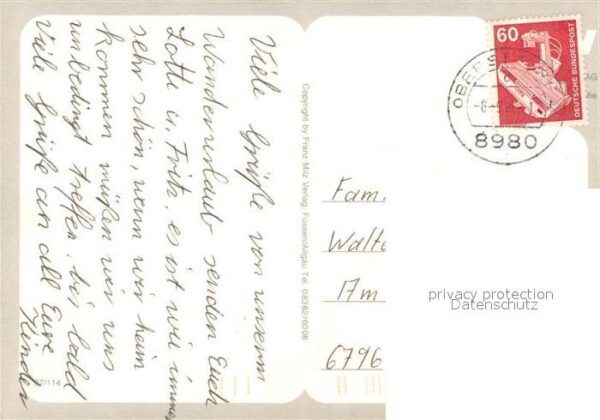 Viele Grüße von unserem
Wanderurlaub senden Euch
Lotte u. Fritz, es ist wie immer
sehr schön, wenn wir heim
kommen müßen wir uns
unbedingt treffen, bis bald
viele Grüße an all Eure
Kinder
27/114
Copyright by Franz Milz Verlag, Füssen/Allgäu Tel. 08362/6008
60
DEUTSCHE BUNDESPOST
OBERST
8980
AG
che
Fam.
Walte
17m
6796
privacy protection
Datenschutz